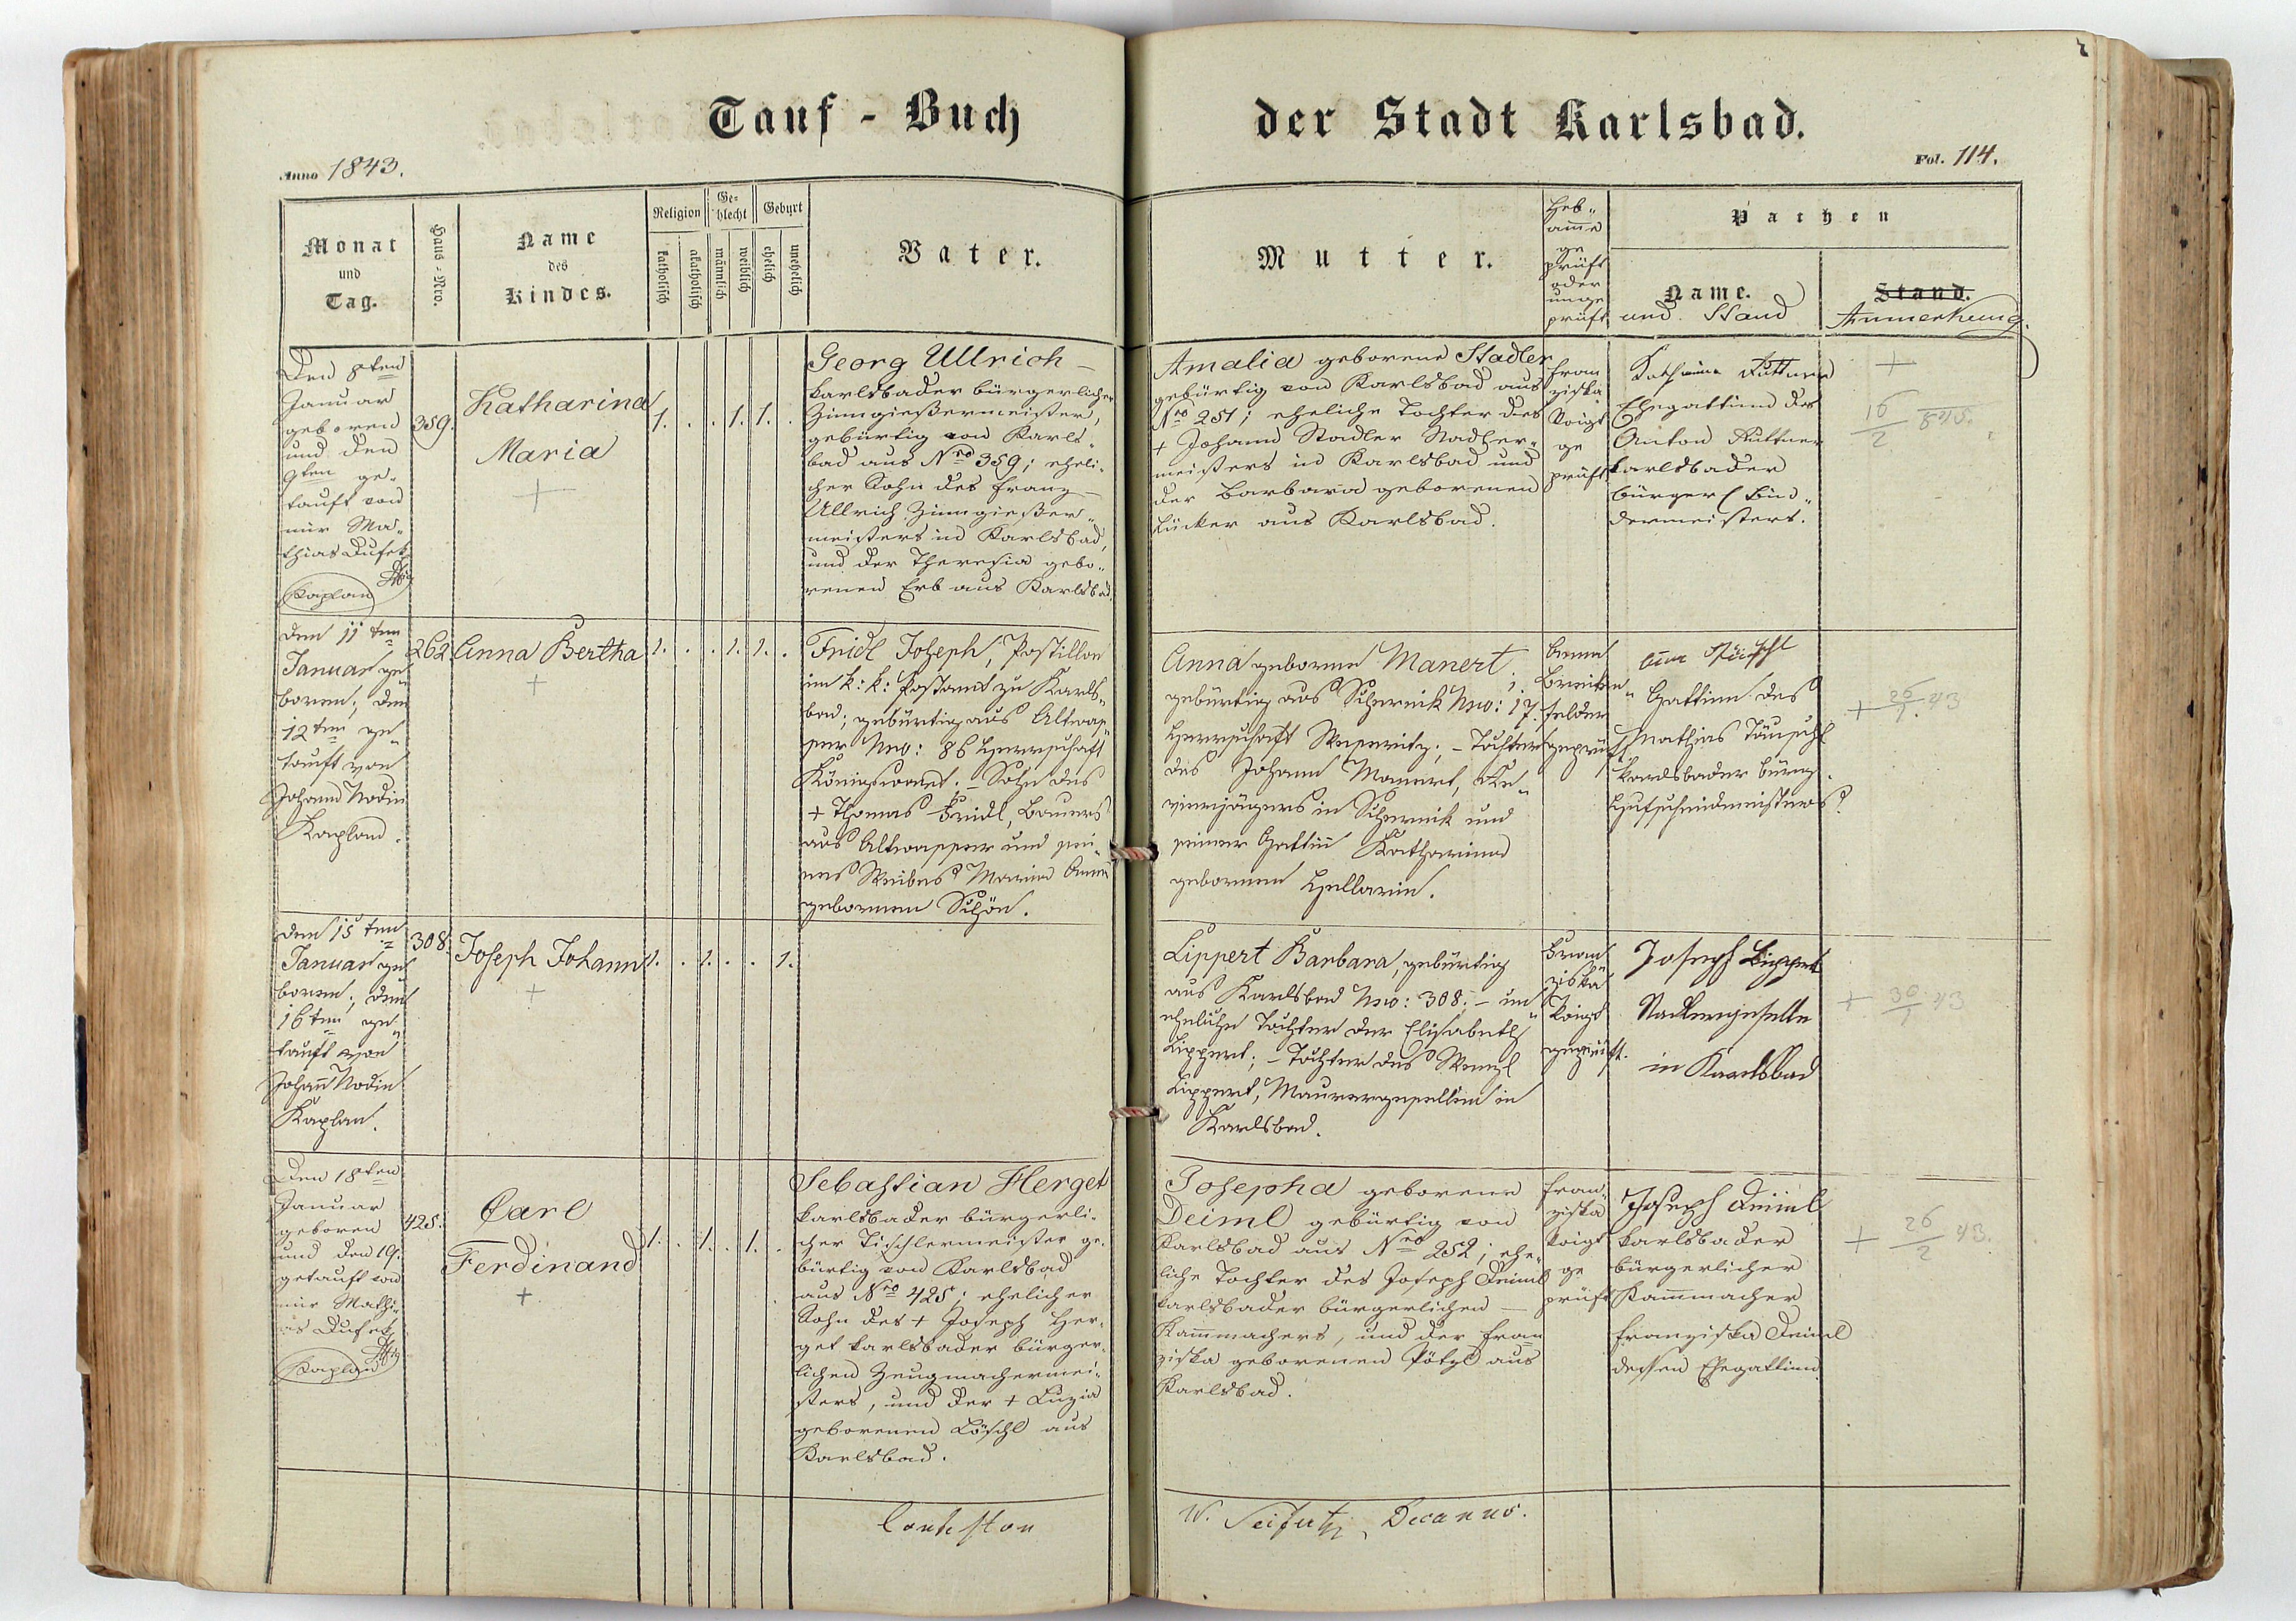 Tauf - Buch
der Stadt Karlsbad.
Anno 1843.
Fol. 114.
Monat
und
Tag.
Haus-Nro.
Name
des
Kindes.
Religion
katholisch
akatholisch
Ge-
schlecht
männlich
weiblich
Geburt
ehelich
unehelich
Vater.
Mutter.
Heb-
amme
ge
prüft
oder
unge
prüft
Pathen
Name.
und Stand
Stand.
Anmerkung.
Den 8ten
Januar
geboren
und den
9ten ge-
tauft von
mir Ma-
thias Dufek
Kaplan
359.
Katharina
Maria
+
1. . . 1. 1. .
Georg Ullrich
karlsbader bürgerlicher
Zinngießermeister,
gebürtig von Karls-
bad aus Nro 359; eheli-
cher Sohn des Franz
Ullrich Zinngießer-
meisters in Karlsbad,
und der Theresia gebo-
renen Erb aus Karlsbad.
Amalia geborene Stadler
gebürtig von Karlsbad aus
Nro 251; eheliche Tochter des
+ Johann Stadler Nadler-
meisters in Karlsbad und
der Barbara geborenen
Lücker aus Karlsbad.
Fran
ziska
Voigt
ge
prüft
Katharina Puttner
Ehegattinn des
Anton Puttner
karlsbader
bürger Bin-
dermeisters.
+
16
2
845.
Den 11ten
Januar ge-
boren; den
12ten ge-
tauft von
Johann Nodin
Kaplan.
262.
Anna Bertha
+
1. . . 1. 1. .
Fridl Joseph, Postillon
im k: k: Postamt zu Karls-
bad; gebürtig aus Altwas-
ser Nro: 86 Herrschaft
Königswart; - Sohn des
+ Thomas Fridl, Bauers
aus Altwasser und sei-
nes Weibes Maria Anna
gebornen Schön.
Anna geborne Manert,
gebürtig aus Schernik Nro: 17.
Herrschaft Weseritz; - Tochter
des Johann Manert, Re-
vierjägers in Schernik und
seiner Gattin Katharina
gebornen Hellarin.
Anna
Breiten-
felder
geprüft
Gattinn des
Mathias Täuschl
Karlsbader bürg.
Hufschmidmeisters
+ 26
1. 43
Den 15ten
Januar ge-
boren; den
16ten ge-
tauft von
Johann Nodin
Kaplan.
308.
Joseph Johann
+
1. . 1. . . 1.
Lippert Barbara, gebürtig
aus Karlsbad Nro: 308. - un-
eheliche Tochter der Elisabeth
Lippert; - Tochter des Wenzl
Lippert, Maurergesellen in
Karlsbad.
Fran
ziska
Voigt
geprüft.
Joseph Lippert
Nadlergeselle
in Karlsbad
+ 30
1 43
Den 18ten
Januar
geboren
und den 19.
getauft von
mir Mathi-
as Dufek
Kaplan
425.
Carl
Ferdinand
+
1. . 1. . 1. .
Sebastian Herget
karlsbader bürgerli-
cher Tischlermeister ge-
bürtig von Karlsbad
aus Nro 425; ehelicher
Sohn des + Joseph Her-
get karlsbader bürger-
lichen Zeugmachermei-
sters, und der + Luzia
geborenen Löschl aus
Karlsbad.
Josepha geborene
Deiml gebürtig von
Karlsbad aus Nro 252; ehe-
liche Tochter des Joseph Deiml
karlsbader bürgerlichen
Kammachers, und der Fran
ziska geborenen Pötzl aus
Karlsbad.
Fran-
ziska
Voigt
ge
prüft
Joseph Deiml
karlsbader
bürgerlicher
Kammacher
Franziska Deiml
dessen Ehegattinn.
+ 26
2 43.
W. Seifert, Decanus.